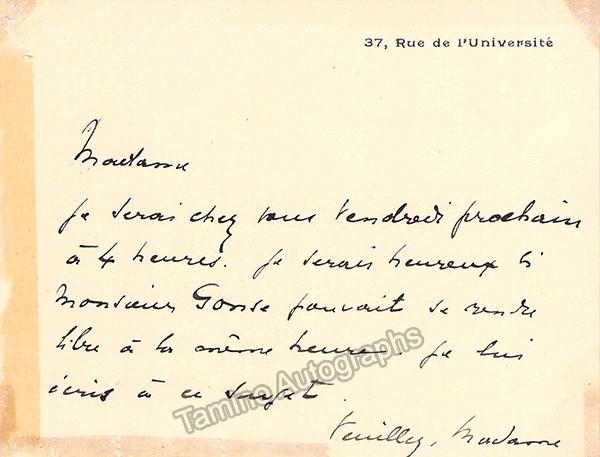 37, Rue de l'Université
Madame
je serai chez vous Vendredi prochain
à 4 heures. je serais heureux si
Monsieur Gonse pouvait se rendre
libre à la même heure. je lui
écris à ce sujet.
Tamino Autographs
Veuillez, Madame